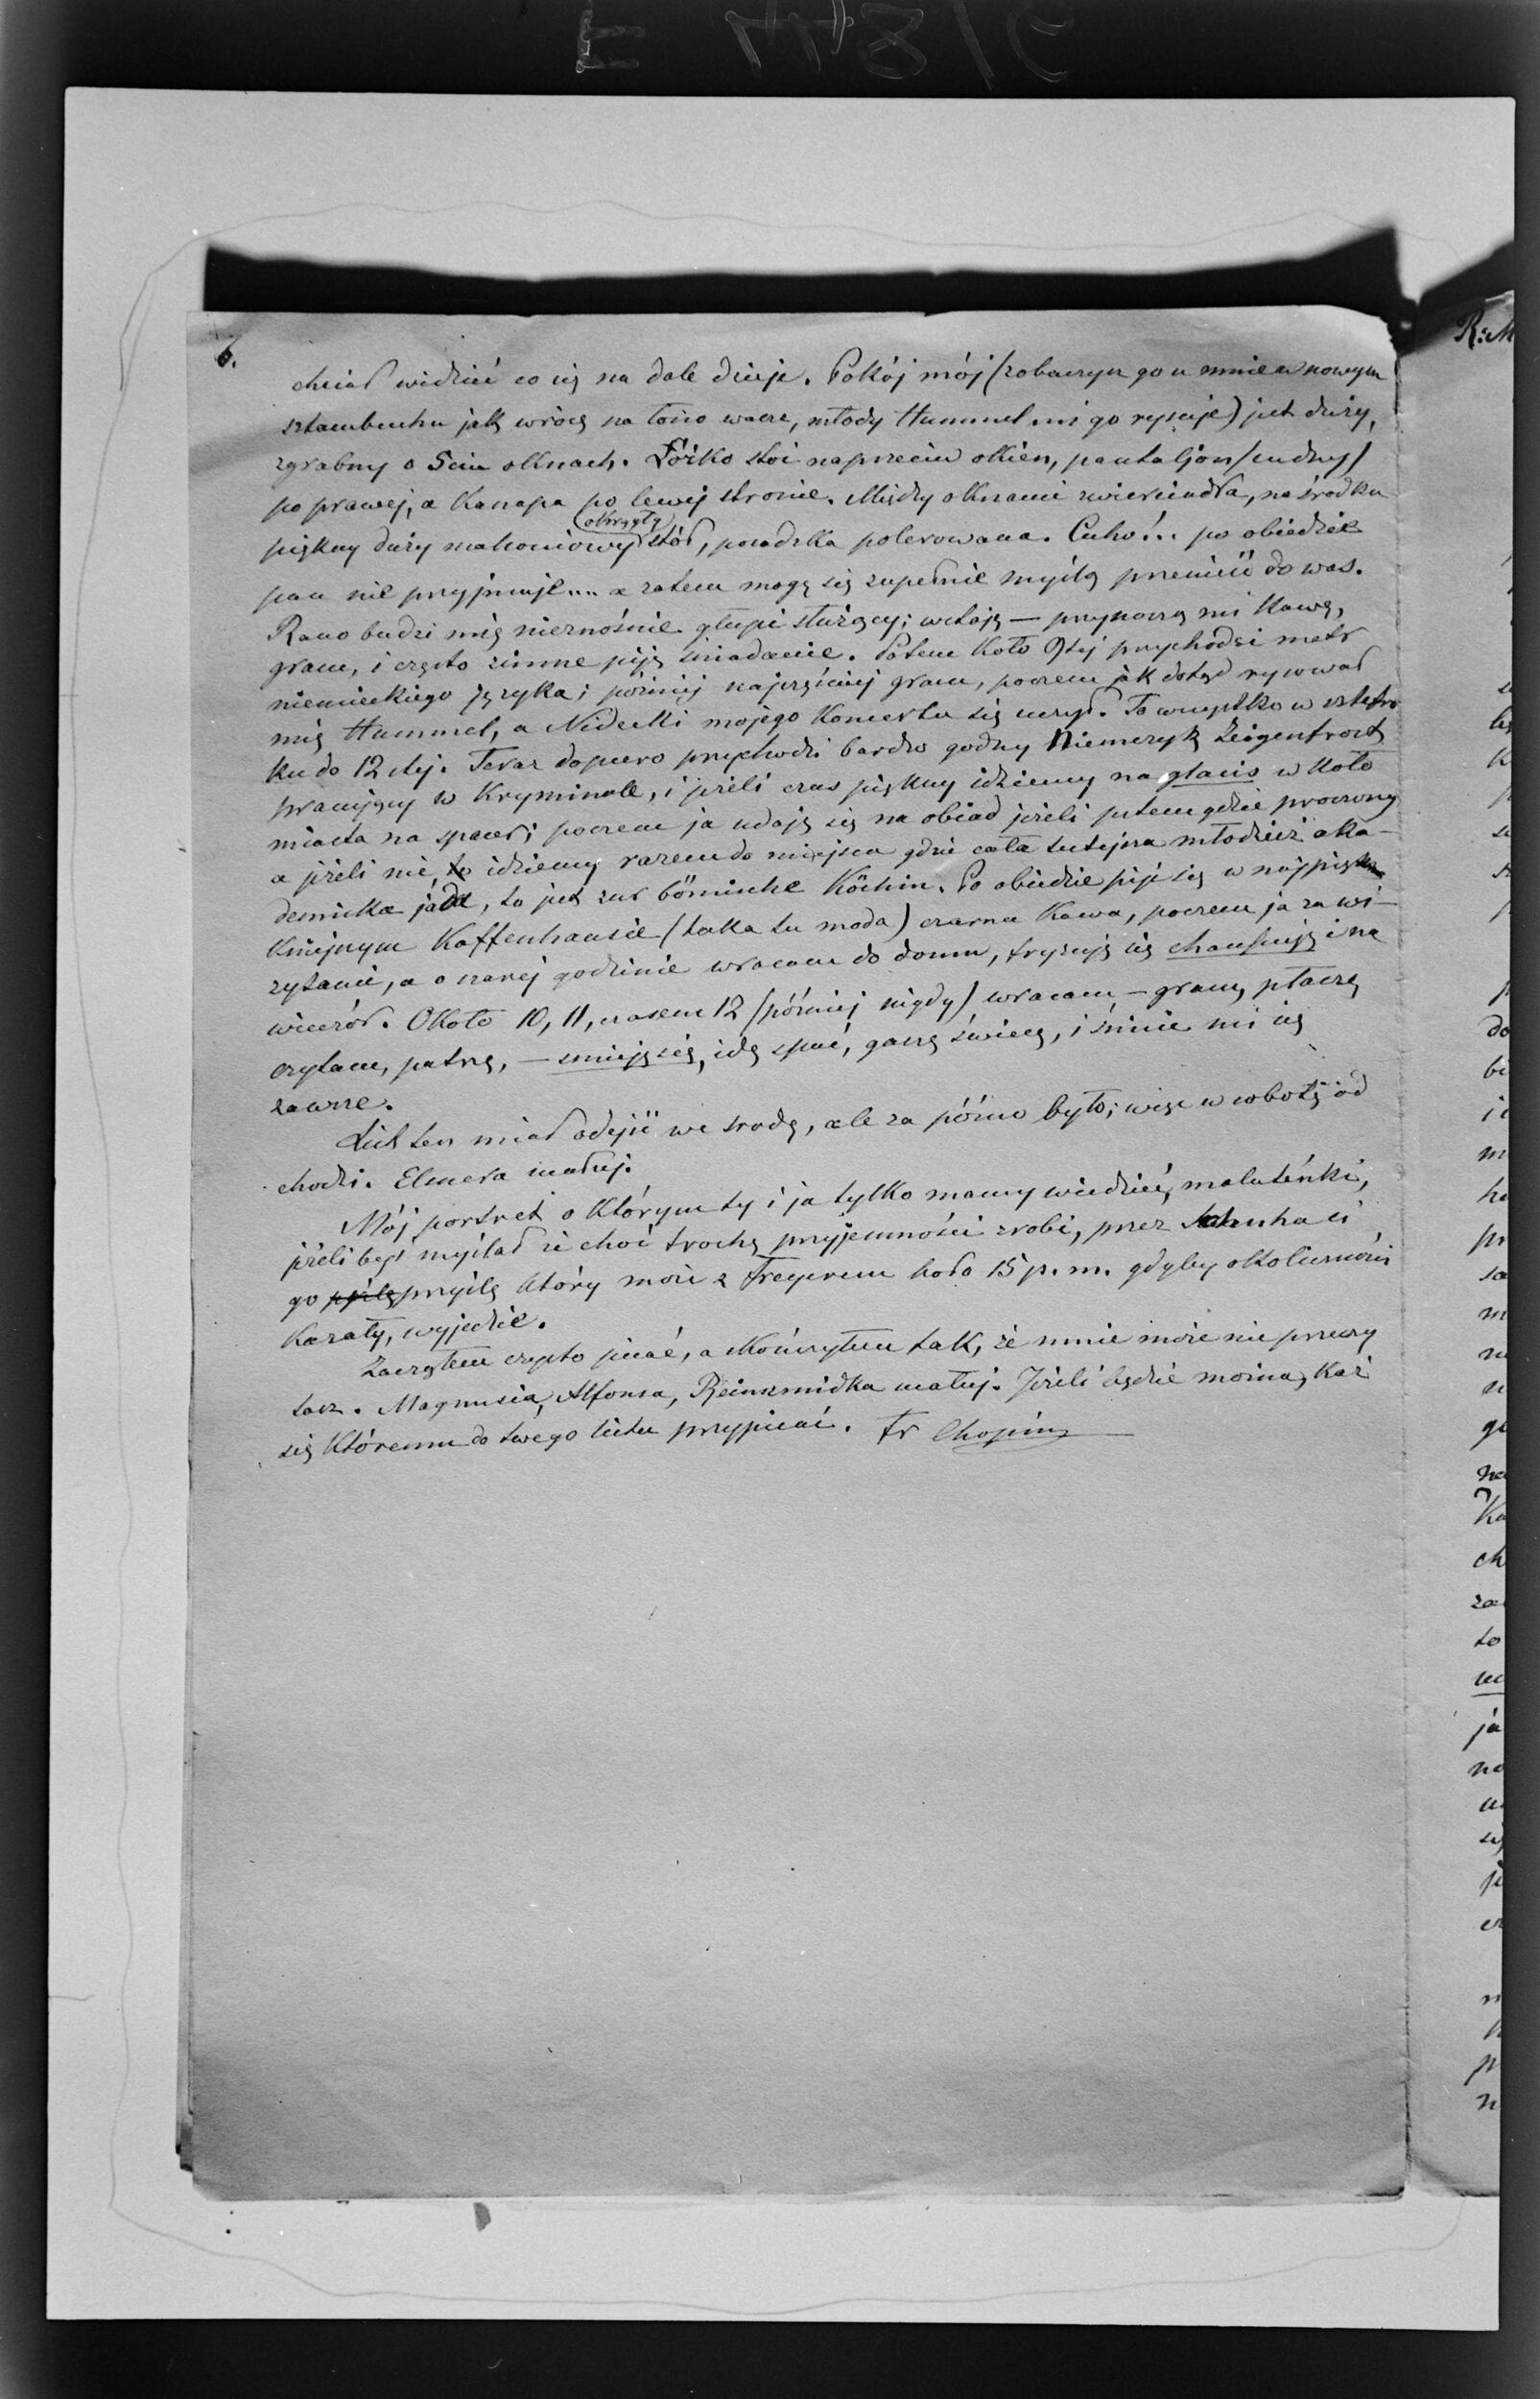 E 1178/6
6.
chciał widzieć co się na dole dzieje. Pokój mój (zobaczysz go u mnie w nowym
sztambuchu jak wrócę na łono wasze, młody Hummel mi go rysuje) jest duży,
zgrabny o 5ciu oknach. Łóżko stoi naprzeciw okien, pantaljon (cudny)
po prawej, a Kanapa po lewej stronie. Między oknami zwierciadła, na środku
piękny duży mahoniowy okrągły stół, posadzka polerowana. Cicho!.. po obiedzie
pan nie przyjmuje.... a zatem mogę się zupełnie myślą przenieść do was.
Rano budzi mię nieznośnie głupi służący; wstaję — przynoszą mi Kawę,
gram, i często zimne piję śniadanie. Potem Koło 9tej przychodzi metr
niemieckiego języka; później najczęściej gram, poczem jak dotąd rysował
mię Hummel, a Nidecki mojego Koncertu się uczył. To wszystko w szlafro
ku do 12stej. Teraz dopiero przychodzi bardzo godny Niemczyk Leigenfrost
pracujący w Kryminale, i jeżeli czas piękny idziemy na glacis w koło
miasta na spacer; poczem ja udaję się na obiad jeżeli jestem gdzie proszony
a jeżeli nie, to idziemy razem do miejsca gdzie cała tutejsza młodzież aka-
demicka jada, to jest zur böhmische Köchin. Po obiedzie pije się w najpię
kniejszym Kaffenhausie (taka tu moda) czarna Kawa, poczem ja za wi-
zytami, a o szarej godzinie wracam do domu, fryzuję się chausuję i na
wieczór. Około 10, 11, czasem 12 (później nigdy) wracam — gram, płaczę,
czytam, patrzę, — smieję się, idę spać, gaszę świecę, i śnicie mi się
zawsze.
List ten miał odejść we środę, ale za późno było; więc w sobotę od
chodzi. Elsnera ucałuj.
Mój portret o którym ty i ja tylko mamy wiedzieć, maluteńki,
jeżeli byś myślał że choć trochę przyjemności zrobi, przez Schucha ci
go przyślę który może z Freyerem koło 15 p. m. gdyby okoliczności
kazały, wyjedzie.
Zacząłem czysto pisać, a skończyłem tak, że mnie może nie przeczy
tasz. Magnusia, Alfonsa, Reinszmidka ucałuj. Jeżeli będzie można, Każ
się któremu do twego listu przypisać. Fr Chopin